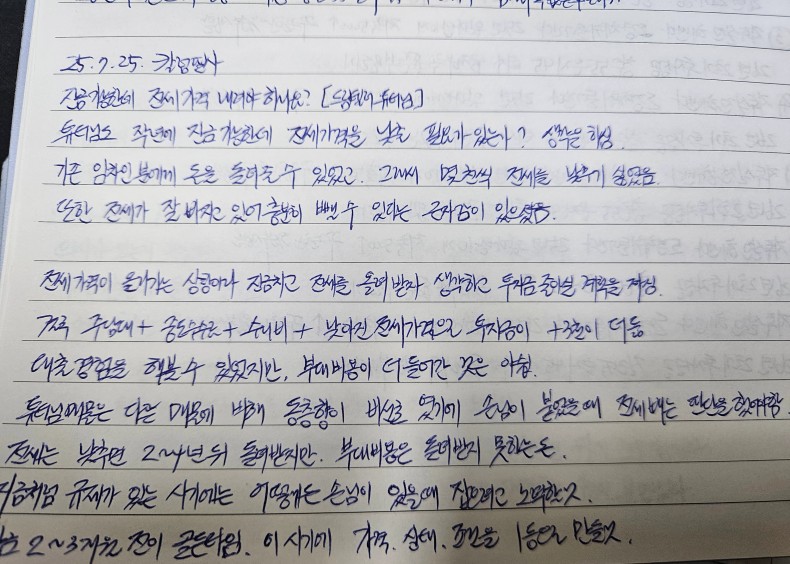 25.7.25. 칼럼필사
잔금가능한데 전세가격 내려야 하나요? [드림텔러 튜터님]
튜터님도 작년에 잔금가능한데 전세가격을 낮출 필요가 있는가? 생각을 하심.
기존 임차인분에게 돈을 돌려줄 수 있었고. 그래서 몇천씩 전세를 낮추기 싫었음.
또한 전세가 잘 빠지고 있어 충분히 뺄 수 있다는 근자감이 있으셨음.
전세가격이 올라가는 상황이라 잔금치고 전세를 올려받자 생각하고 투자금 줄이실 계획을 하심.
결국 주담대 + 중도수수료 + 수리비 + 낮아진 전세가격으로 투자금이 +3천이 더듬
대출경험을 해볼 수 있었지만, 부대비용이 더 들어간 것은 아쉼.
튜터님매물은 다른 매물에 비해 동층향이 비선호 였기에 손님이 붙었을때 전세빼는 판단을 했어야함
전세는 낮추면 2~4년 뒤 돌려받지만. 부대비용은 돌려받지 못하는돈.
지금처럼 규제가 있는 시기에는 어떻게든 손님이 있을때 잡으려고 노력한것.
2~3개월 전이 골든타임. 이 시기에 가격. 상태. 조건을 1등으로 만들것.